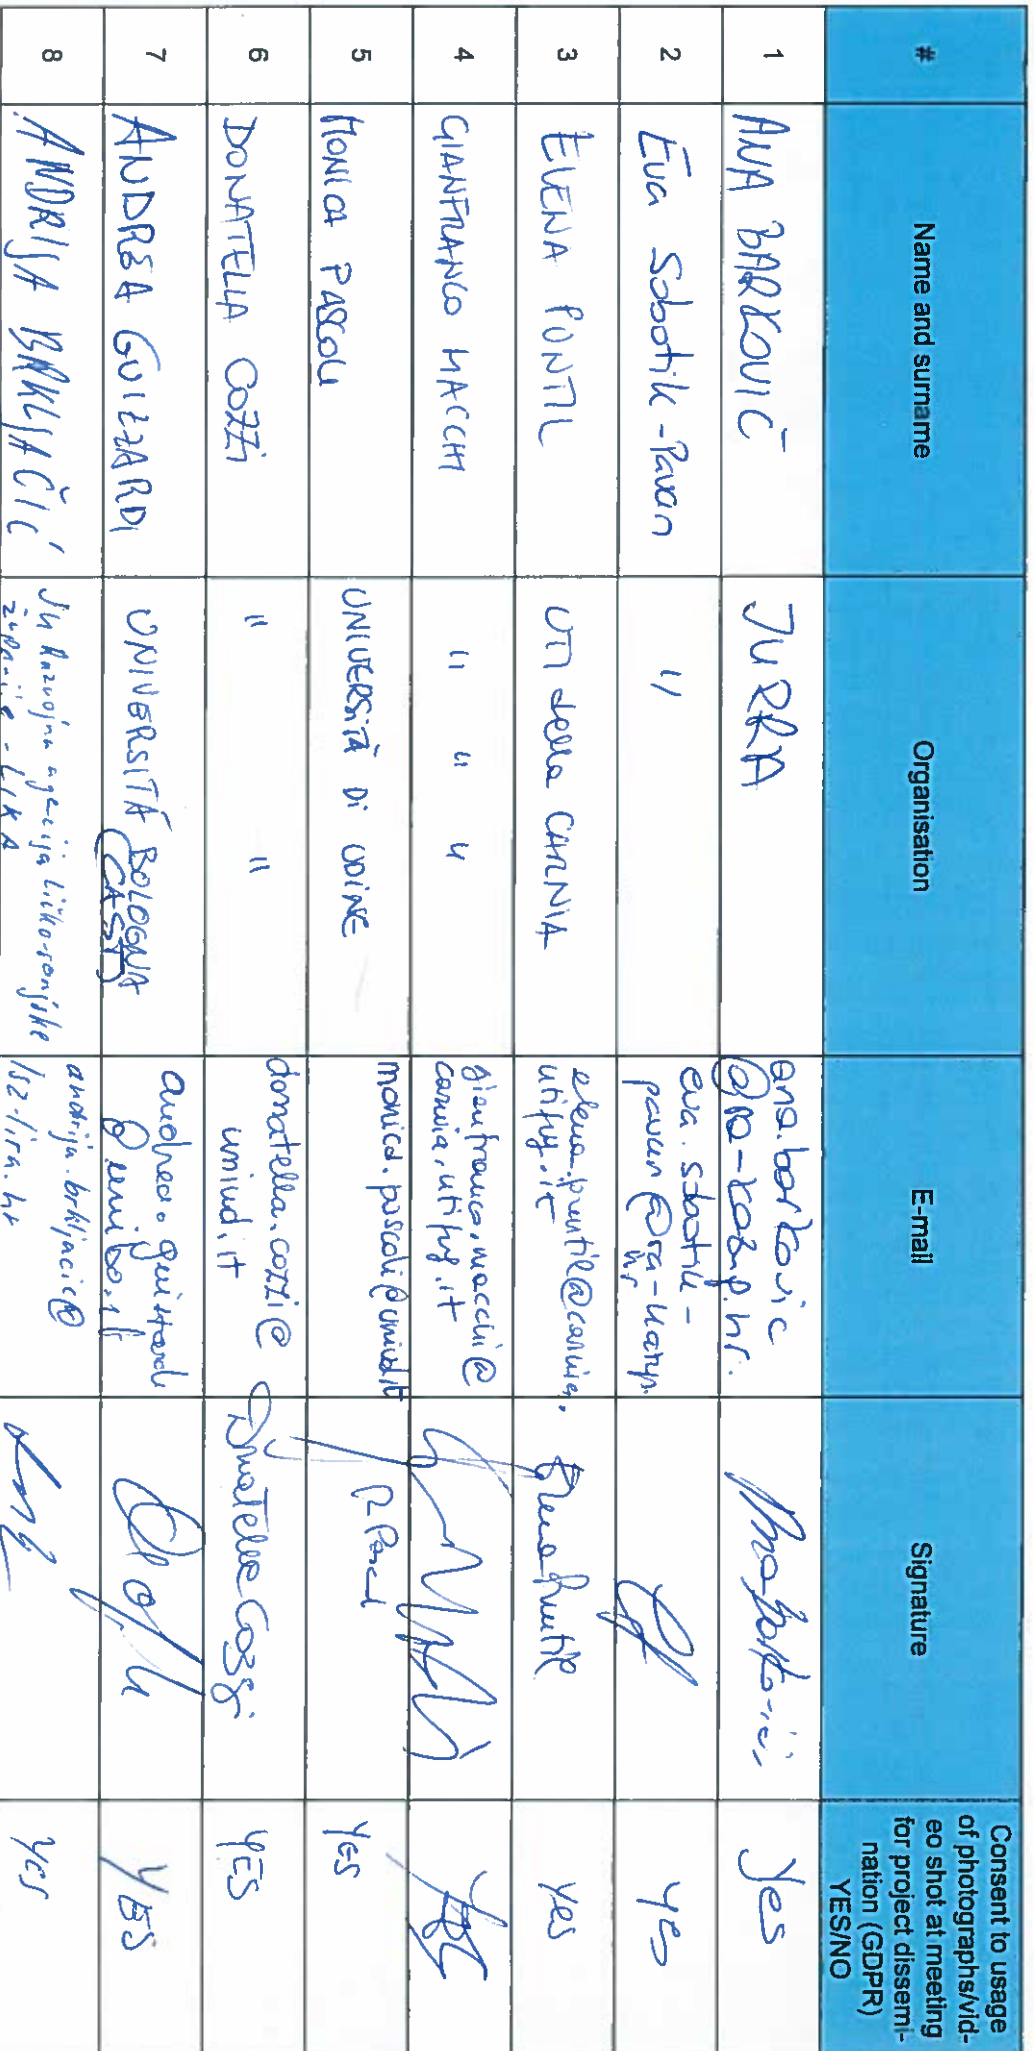 #
Name and surname
Organisation
E-mail
Signature
Consent to usage
of photographs/vid-
eo shot at meeting
for project dissemi-
nation (GDPR)
YES/NO
1
ANA BARKOVIĆ
JURRA
ana.barkovic
@ra-kazup.hr.
Yes
2
Eva Sobotik-Pavan
"
eva.sobotik-
pavan@ra-kazup.
hr
yes
3
ELENA PUNTIL
UTI della CARNIA
elena.puntil@carnia.
utifvg.it
Elena Puntil
yes
4
GIANFRANCO MACCHI
" " "
gianfranco.macchi@
carnia.utifvg.it
YES
5
MONICA PASCOLI
UNIVERSITÀ DI UDINE
monica.pascoli@uniud.it
YES
6
DONATELLA COZZI
" "
donatella.cozzi@
uniud.it
Donatella Cozzi
YES
7
ANDREA GUIZZARDI
UNIVERSITÀ BOLOGNA
(CAST)
andrea.guizzardi
@unibo.it
YES
8
ANDRIJA BRKLJAČIĆ
JU Razvojna agencija Ličko-senjske
županije - LIRA
andrija.brkljacic@
lsz-lira.hr
yes